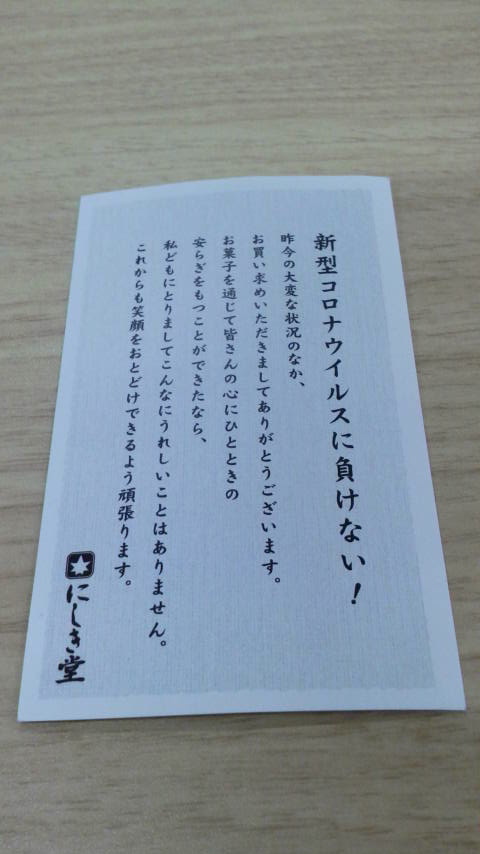 新型コロナウイルスに負けない！
昨今の大変な状況のなか、
お買い求めいただきましてありがとうございます。
お菓子を通じて皆さんの心にひとときの
安らぎをもつことができたなら、
私どもにとりましてこんなにうれしいことはありません。
これからも笑顔をおとどけできるよう頑張ります。
にしき堂